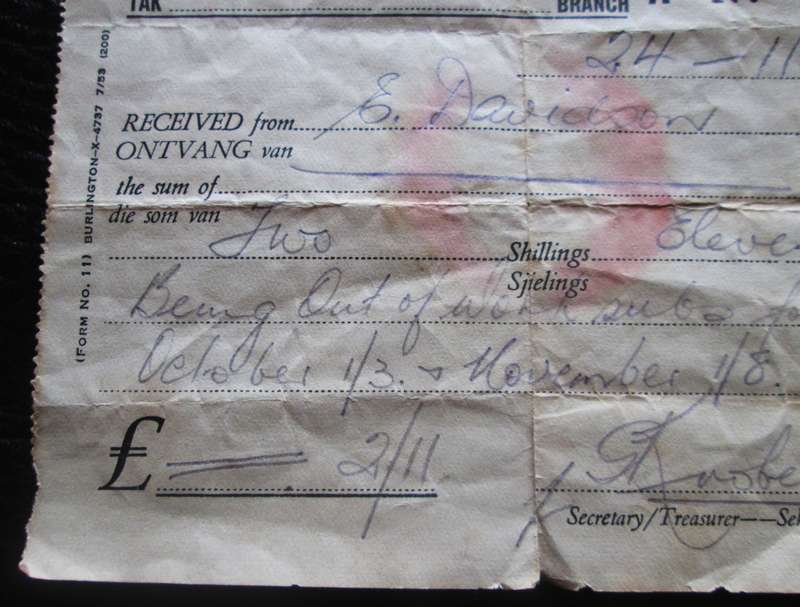 TAK BRANCH
24 - 11
RECEIVED from E. Davidson
ONTVANG van
the sum of
die som van Two Shillings Eleve
Sjielings
Being Out of Work subs f
October 1/3. & November 1/8.
£ 2/11
Secretary/Treasurer—Se
(FORM NO. 11) BURLINGTON—X—4737 7/53 (200)